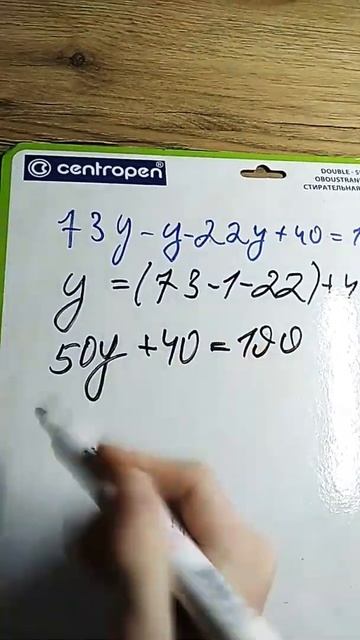 centropen®
DOUBLE-S
OBOUSTRAN
СТИРАТЕЛЬНА
73y-y-22y+40=1
y=(73-1-22)+4
50y+40=190